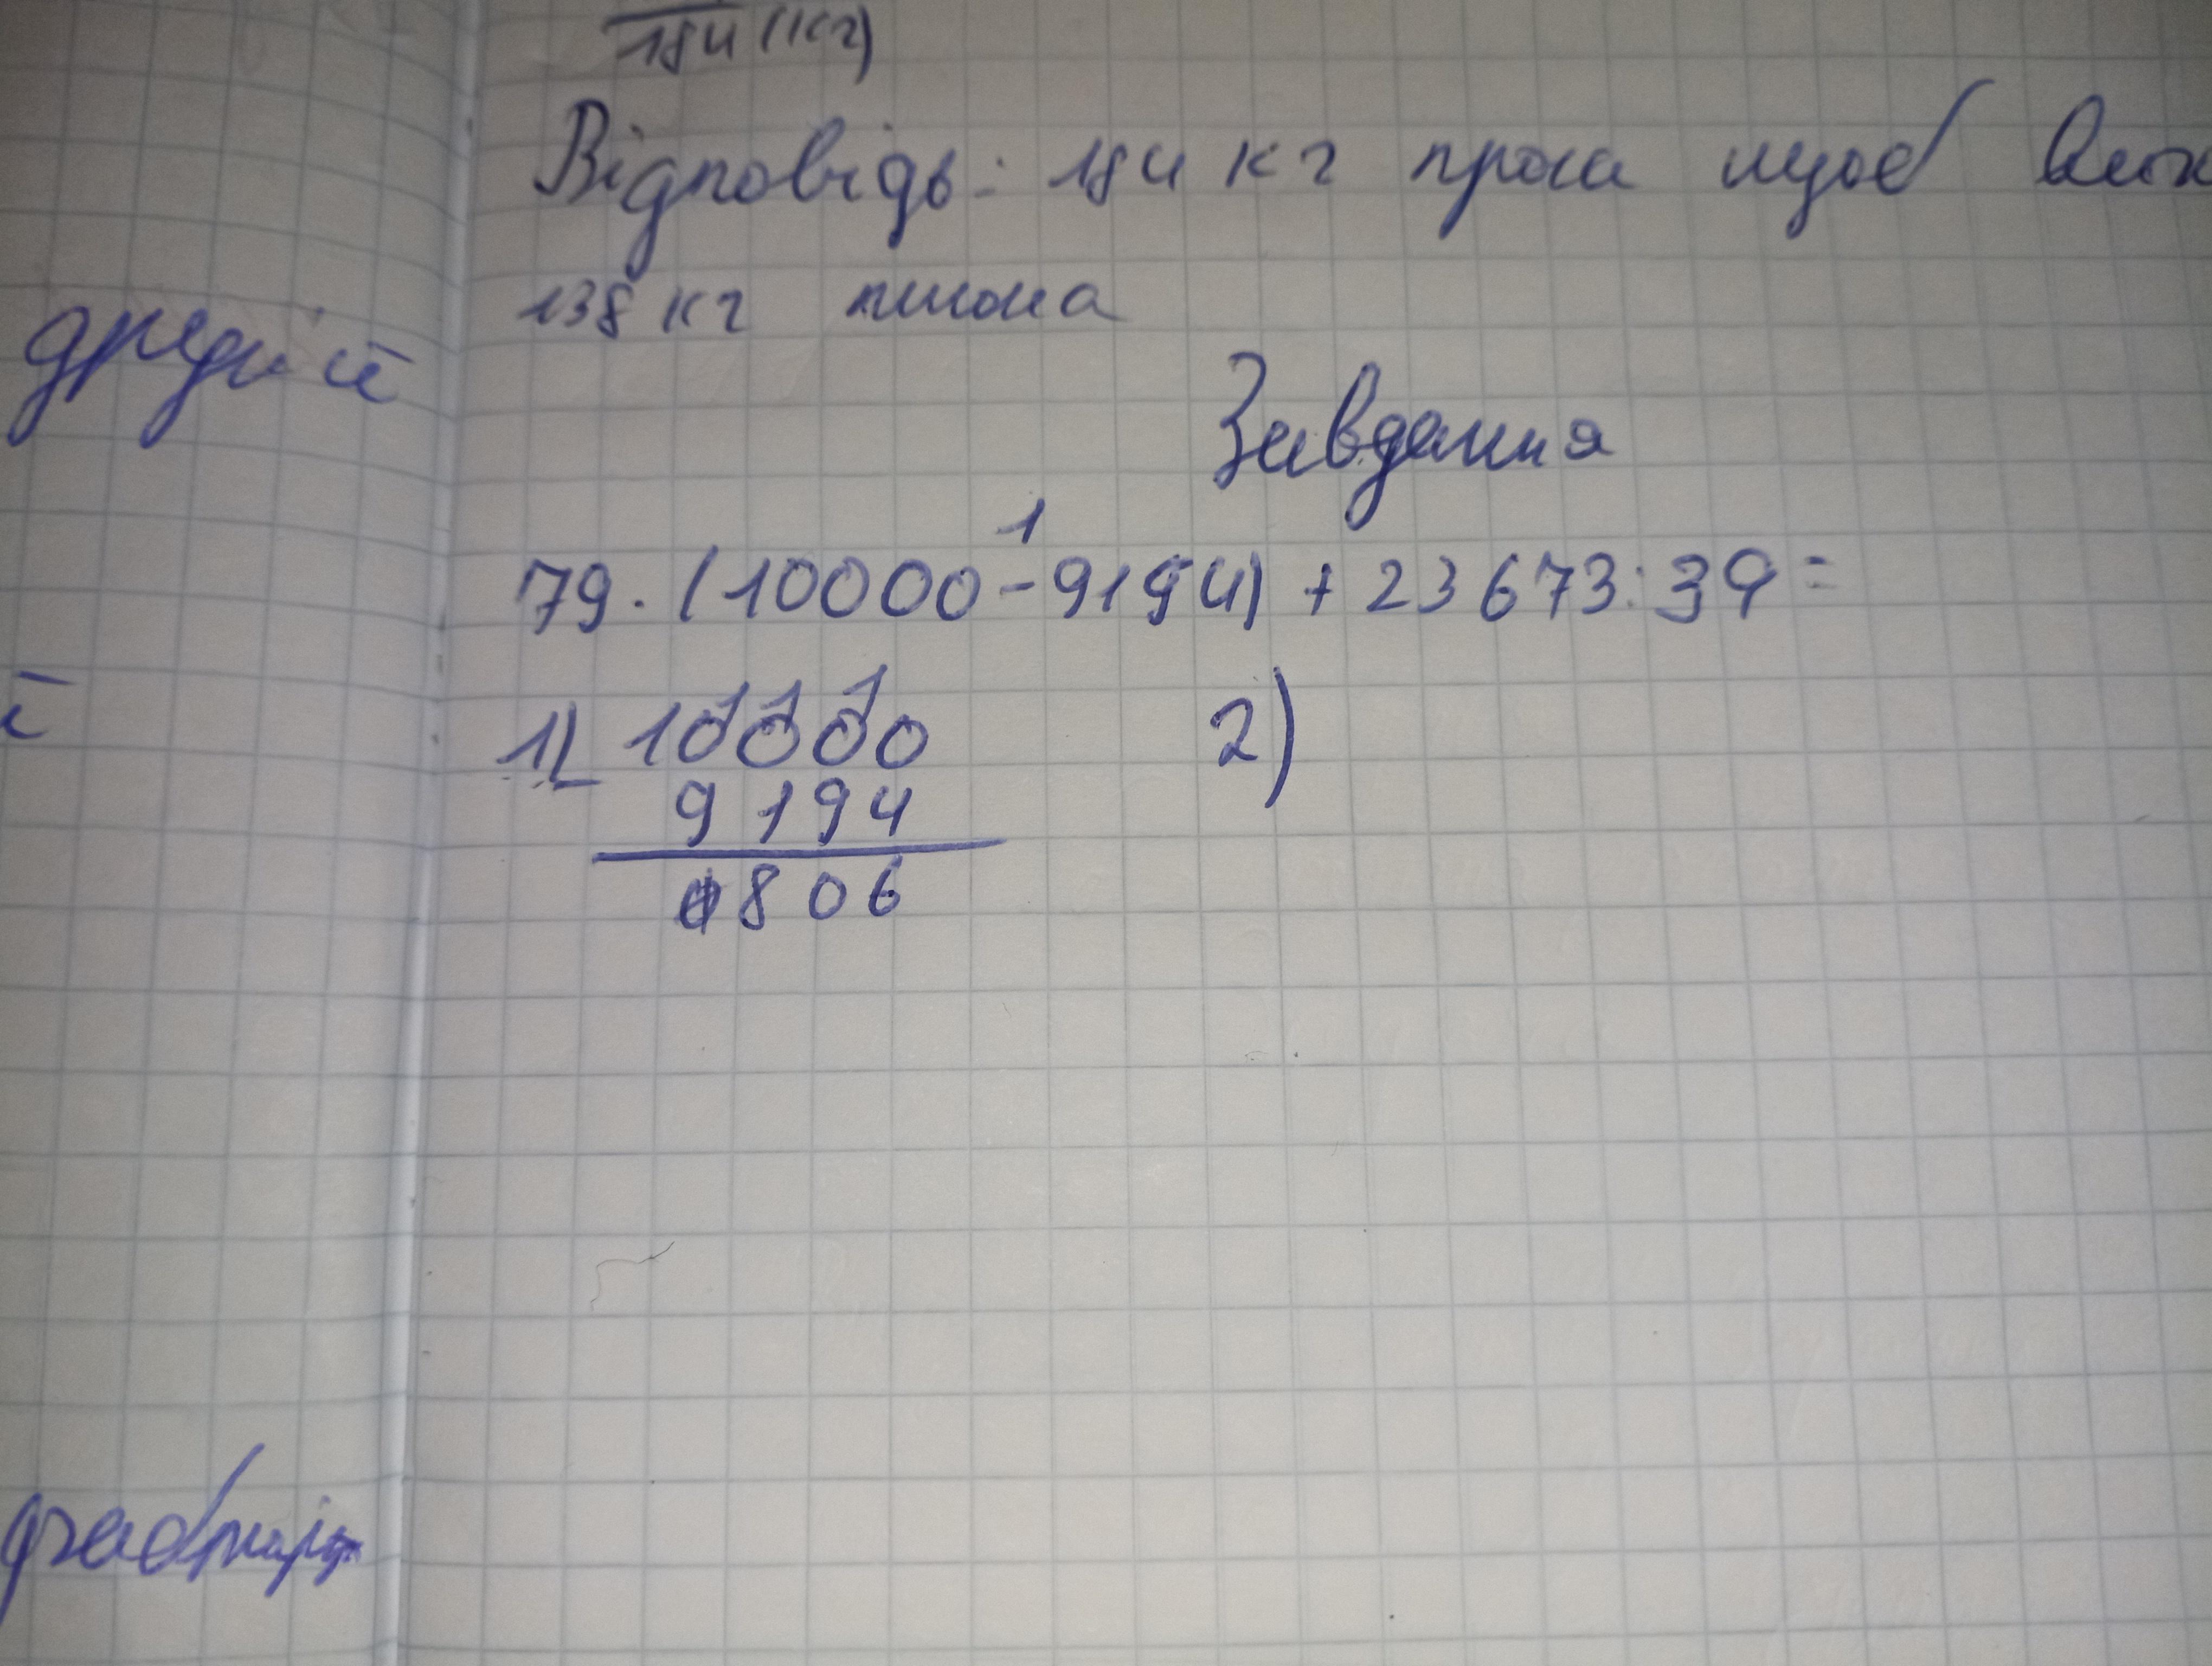 184 (кг)
Відповідь: 184 кг проса щоб
138 кг пшона
Завдання
1
79 · (10000 - 9194) + 23 673 : 39 =
1) - 10000
9194
0806
2)